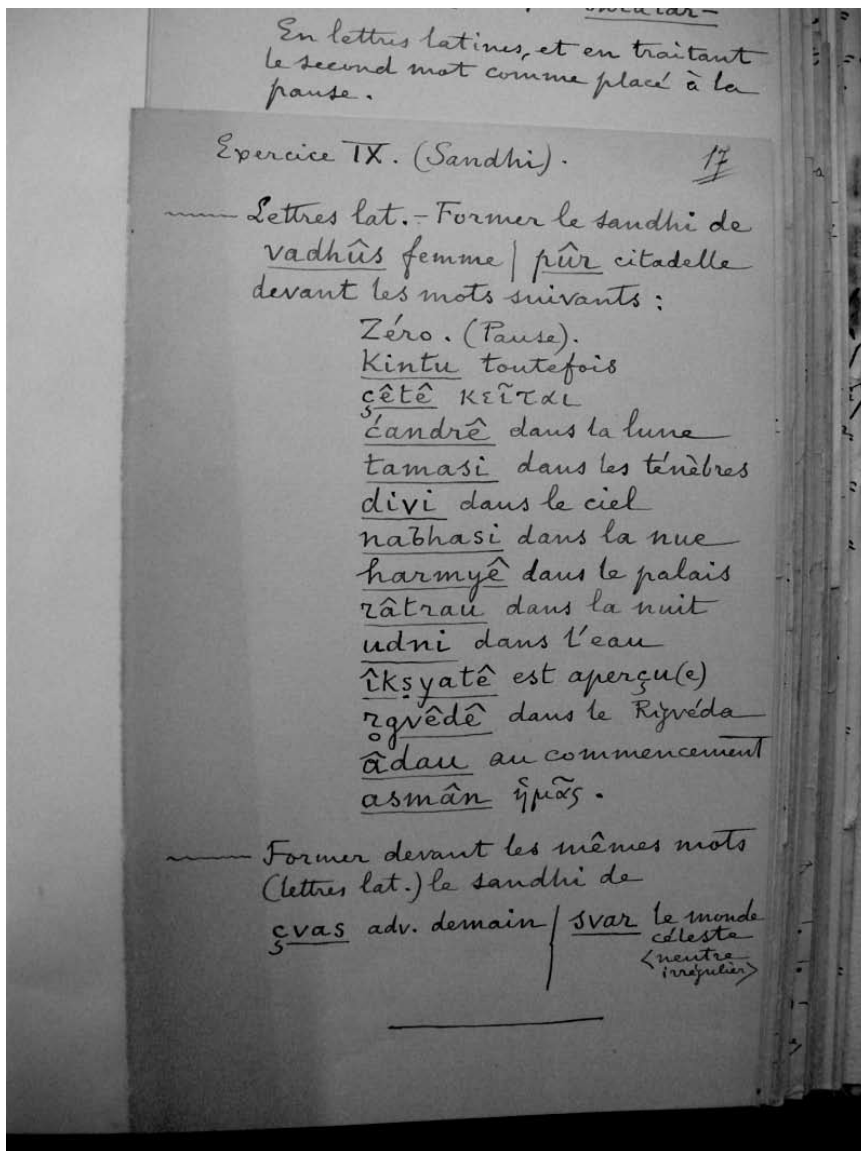 En lettres latines, et en traitant
le second mot comme placé à la
pause.
Exercice IX. (Sandhi). 17
Lettres lat. – Former le sandhi de
vadhûs femme | pûr citadelle
devant les mots suivants :
Zéro. (Pause).
Kintu toutefois
çêtê κεῖται
ćandrê dans la lune
tamasi dans les ténèbres
divi dans le ciel
nabhasi dans la nue
harmyê dans le palais
râtrau dans la nuit
udni dans l'eau
îkṣyatê est aperçu(e)
r̥gvêdê dans le Rigvéda
âdau au commencement
asmân ἡμᾶς.
Former devant les mêmes mots
(lettres lat.) le sandhi de
çvas adv. demain / svar le monde
céleste
<neutre
irrégulier>